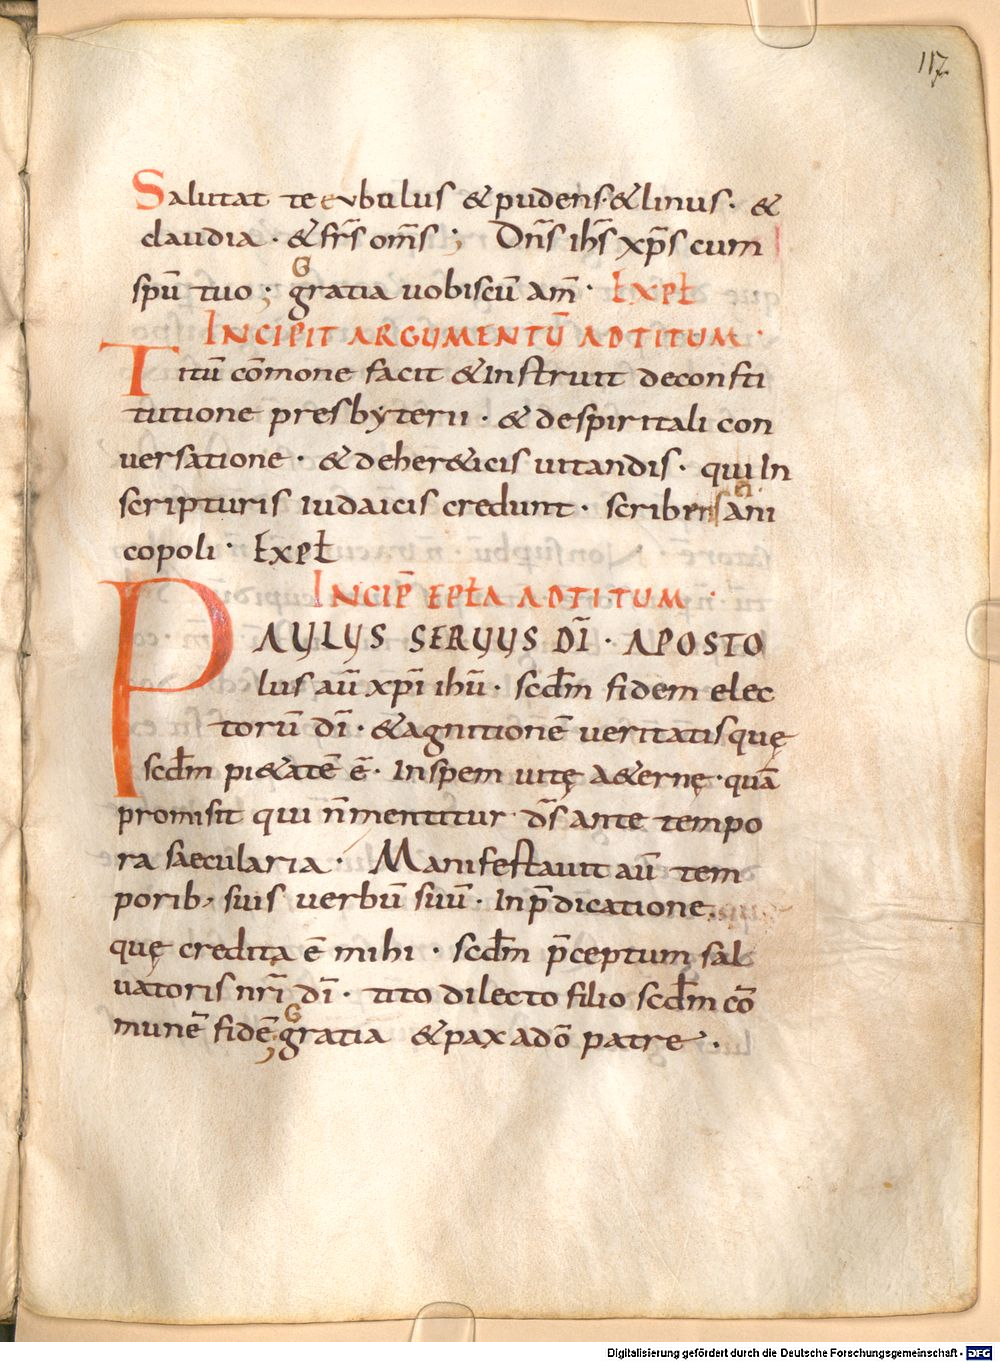 117
Salutat te eubulus & pudens· & linus· &
claudia· & fr̄s om̄s; Dn̄s ih̄s xp̄s cum
spū tuo; gratia uobiscū am̄· Expł
INCIPIT ARGUMENTŪ ADTITUM·
Titū cōmone facit & Instruit deconsti
tutione presbyterii· & despiritali con
uersatione· & deher&icis uitandis· qui In
scripturis iudaicis credunt· scribens ani
copoli· Expł
INCIP̄ EPŁA ADTITUM·
PAULUS SERUUS DĪ· APOSTO
lus aū xp̄i ihū· scd̄m fidem elec
torū dī· & agnitionē ueritatis quę
scd̄m pi&atē ē· Inspem uitę A&ernę· quā
promisit qui n̄ mentitur d̄s ante tempo
ra saecularia· Manifestauit aū tem
porib; suis uerbū suū· Inp̄dicatione
quę credita ē mihi· scd̄m p̄ceptum sal
uatoris nr̄i dī· tito dilecto filio scd̄m cō
munē fidē; gratia & pax adō patre·
Digitalisierung gefördert durch die Deutsche Forschungsgemeinschaft - DFG